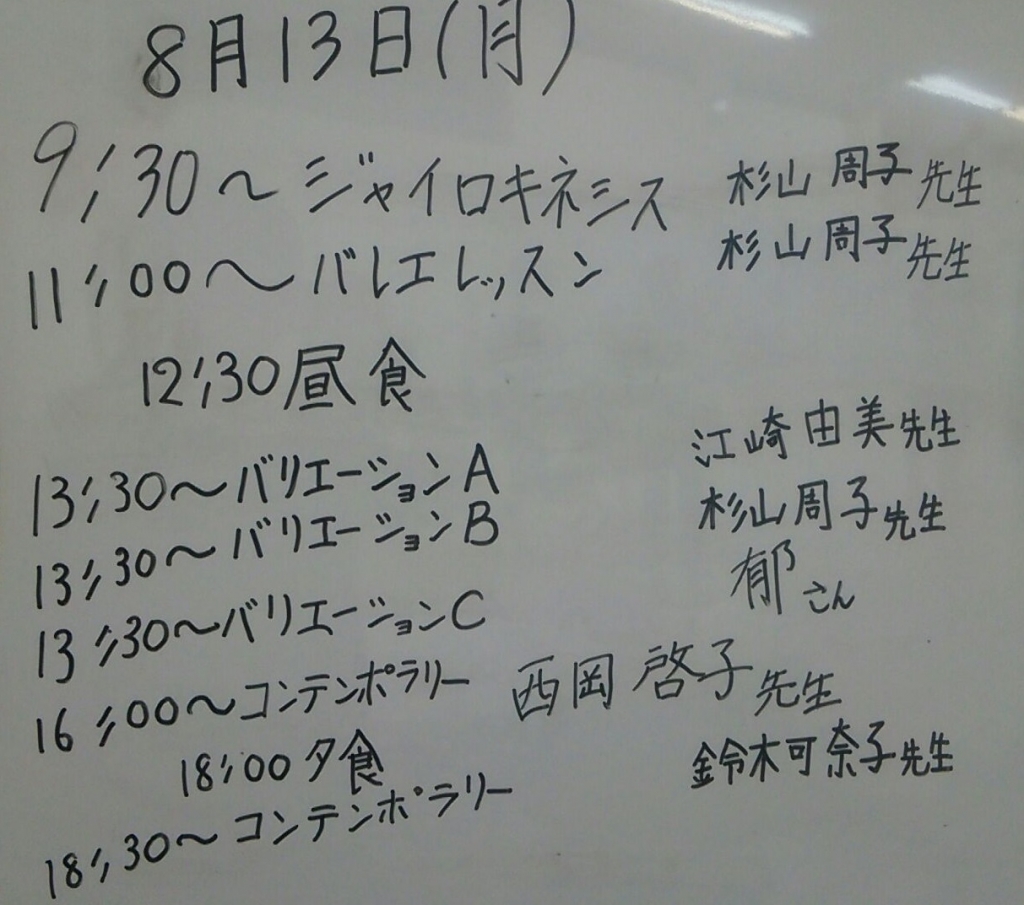 8月13日(月)
9:30～ジャイロキネシス 杉山周子先生
11:00～バレエレッスン 杉山周子先生
12:30昼食
13:30～バリエーションA 江崎由美先生
13:30～バリエーションB 杉山周子先生
13:30～バリエーションC 郁さん
16:00～コンテンポラリー 西岡啓子先生
18:00夕食
18:30～コンテンポラリー 鈴木可奈子先生